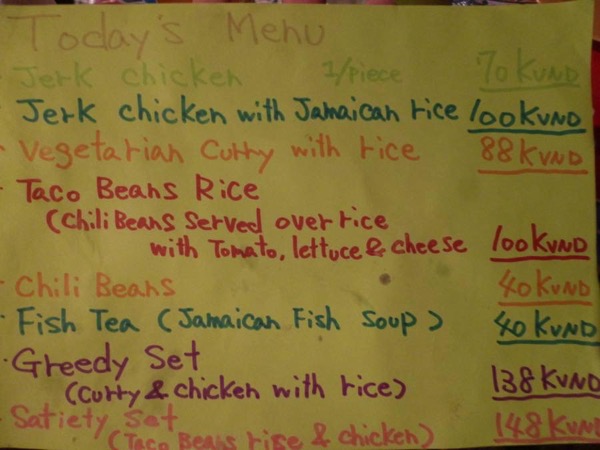 Today's Menu
- Jerk chicken 1/Piece 70KVND
Jerk chicken with Jamaican rice 100KVND
- Vegetarian Curry with rice 88KVND
- Taco Beans Rice
(Chili Beans Served over rice
with Tomato, lettuce & cheese 100KVND
- Chili Beans 40KVND
- Fish Tea (Jamaican Fish Soup) 40KVND
· Greedy Set
(Curry & chicken with rice) 138KVND
- Satiety Set 148KVND
(Taco Beans rise & chicken)